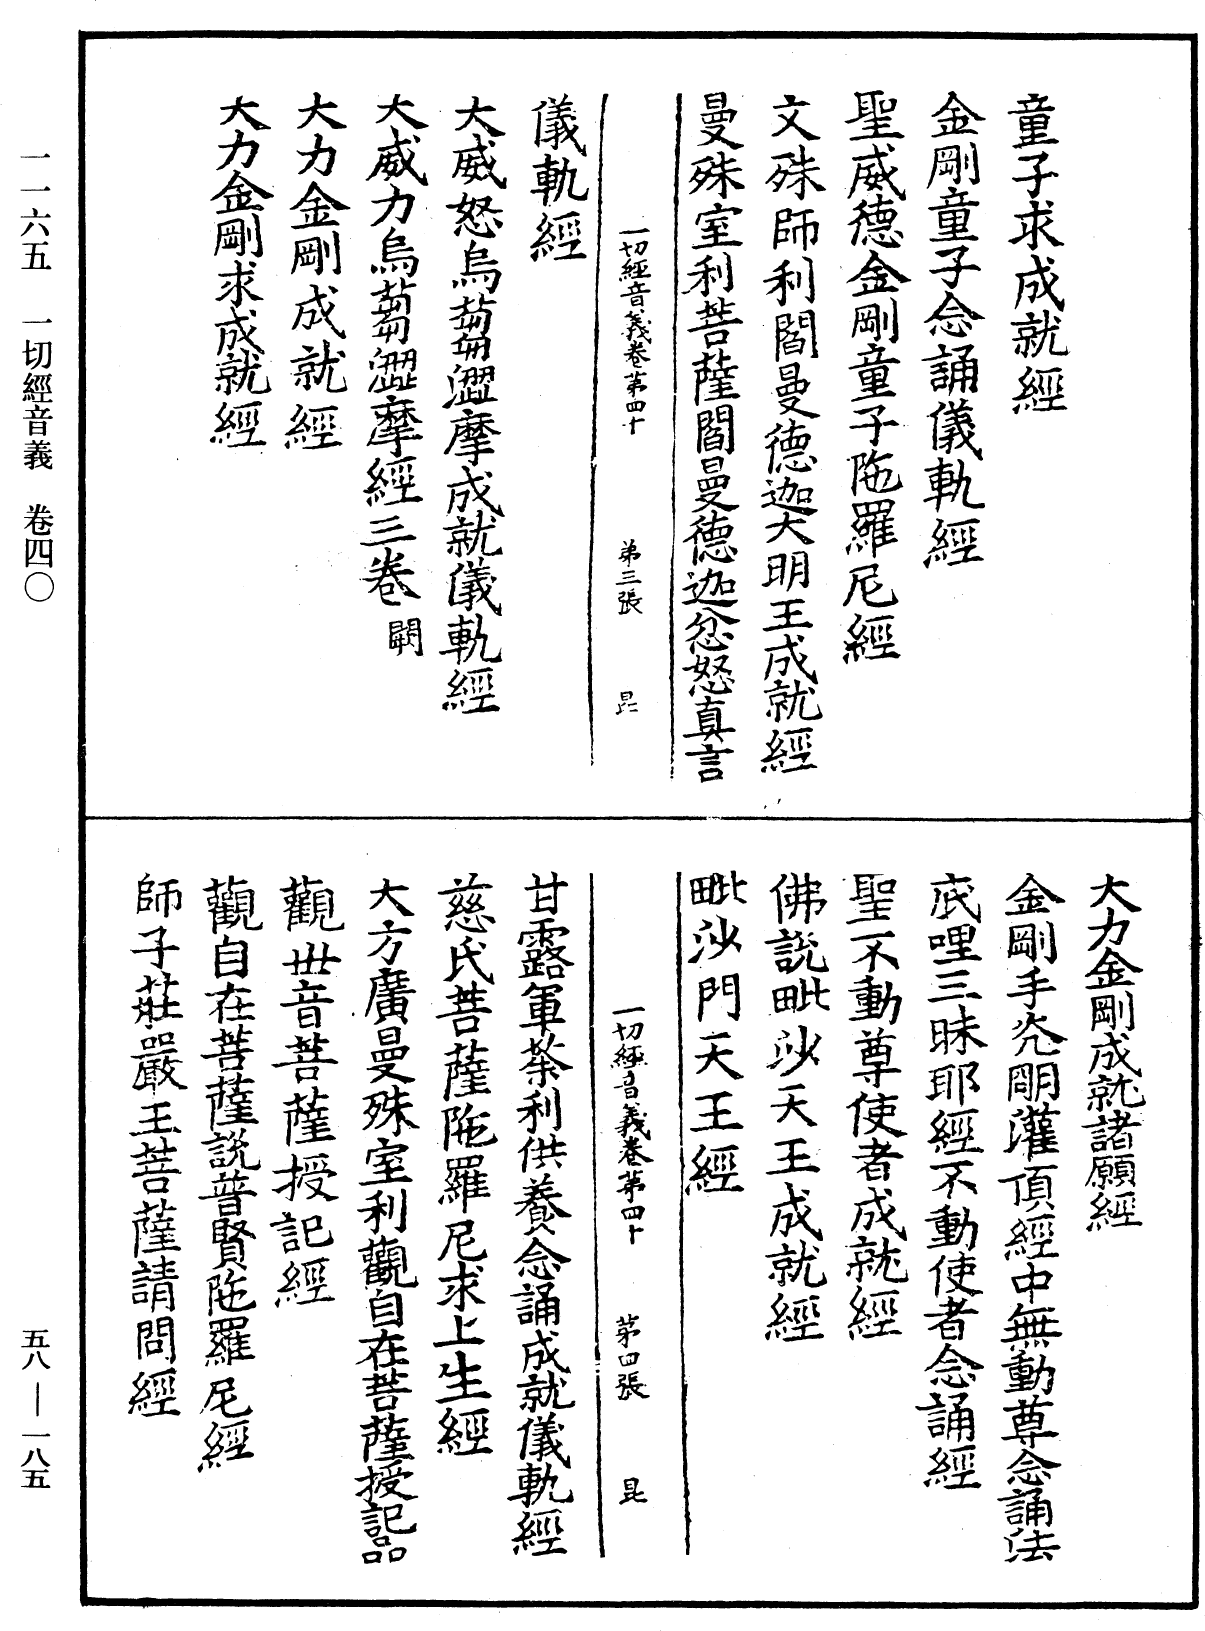 童子求成就經
金剛童子念誦儀軌經
聖威德金剛童子陁羅尼經
文殊師利閻曼德迦大明王成就經
曼殊室利菩薩閻曼德迦忿怒真言
一切經音義卷第四十 第三張 昆
儀軌經
大威怒烏蒭澀摩成就儀軌經
大威力烏蒭澀摩經三卷 闕
大力金剛成就經
大力金剛求成就經
大力金剛成就諸願經
金剛手光明灌頂經中無動尊念誦法
底哩三昧耶經不動使者念誦經
聖不動尊使者成就經
佛說毗沙天王成就經
毗沙門天王經
一切經音義卷第四十 第四張 昆
甘露軍荼利供養念誦成就儀軌經
慈氏菩薩陁羅尼求上生經
大方廣曼殊室利觀自在菩薩授記品
觀世音菩薩授記經
觀自在菩薩說普賢陁羅尼經
師子莊嚴王菩薩請問經
一一六五 一切經音義 卷四〇
五八—一八五